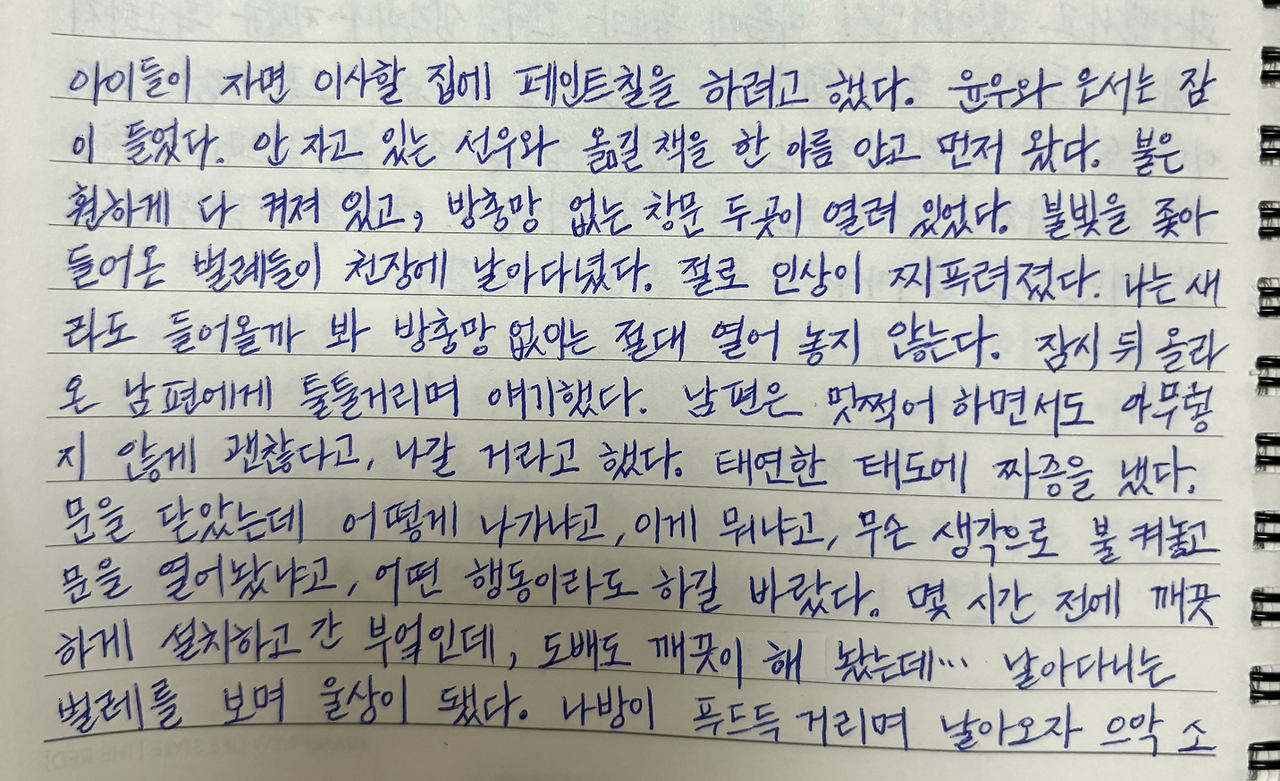 아이들이 자면 이사할 집에 페인트칠을 하려고 했다. 윤우와 은서는 잠
이 들었다. 안 자고 있는 선우와 옮길 책을 한 아름 안고 먼저 왔다. 불은
훤하게 다 켜져 있고, 방충망 없는 창문 두곳이 열려 있었다. 불빛을 좇아
들어온 벌레들이 천장에 날아다녔다. 절로 인상이 찌푸려졌다. 나는 새
라도 들어올까 봐 방충망 없이는 절대 열어 놓지 않는다. 잠시 뒤 올라
온 남편에게 툴툴거리며 얘기했다. 남편은 멋쩍어 하면서도 아무렇
지 않게 괜찮다고, 나갈 거라고 했다. 태연한 태도에 짜증을 냈다.
문을 닫았는데 어떻게 나가냐고, 이게 뭐냐고, 무슨 생각으로 불 켜놓고
문을 열어놨냐고, 어떤 행동이라도 하길 바랐다. 몇 시간 전에 깨끗
하게 설치하고 간 부엌인데, 도배도 깨끗이 해 놨는데… 날아다니는
벌레를 보며 울상이 됐다. 나방이 푸드득 거리며 날아오자 으악 소